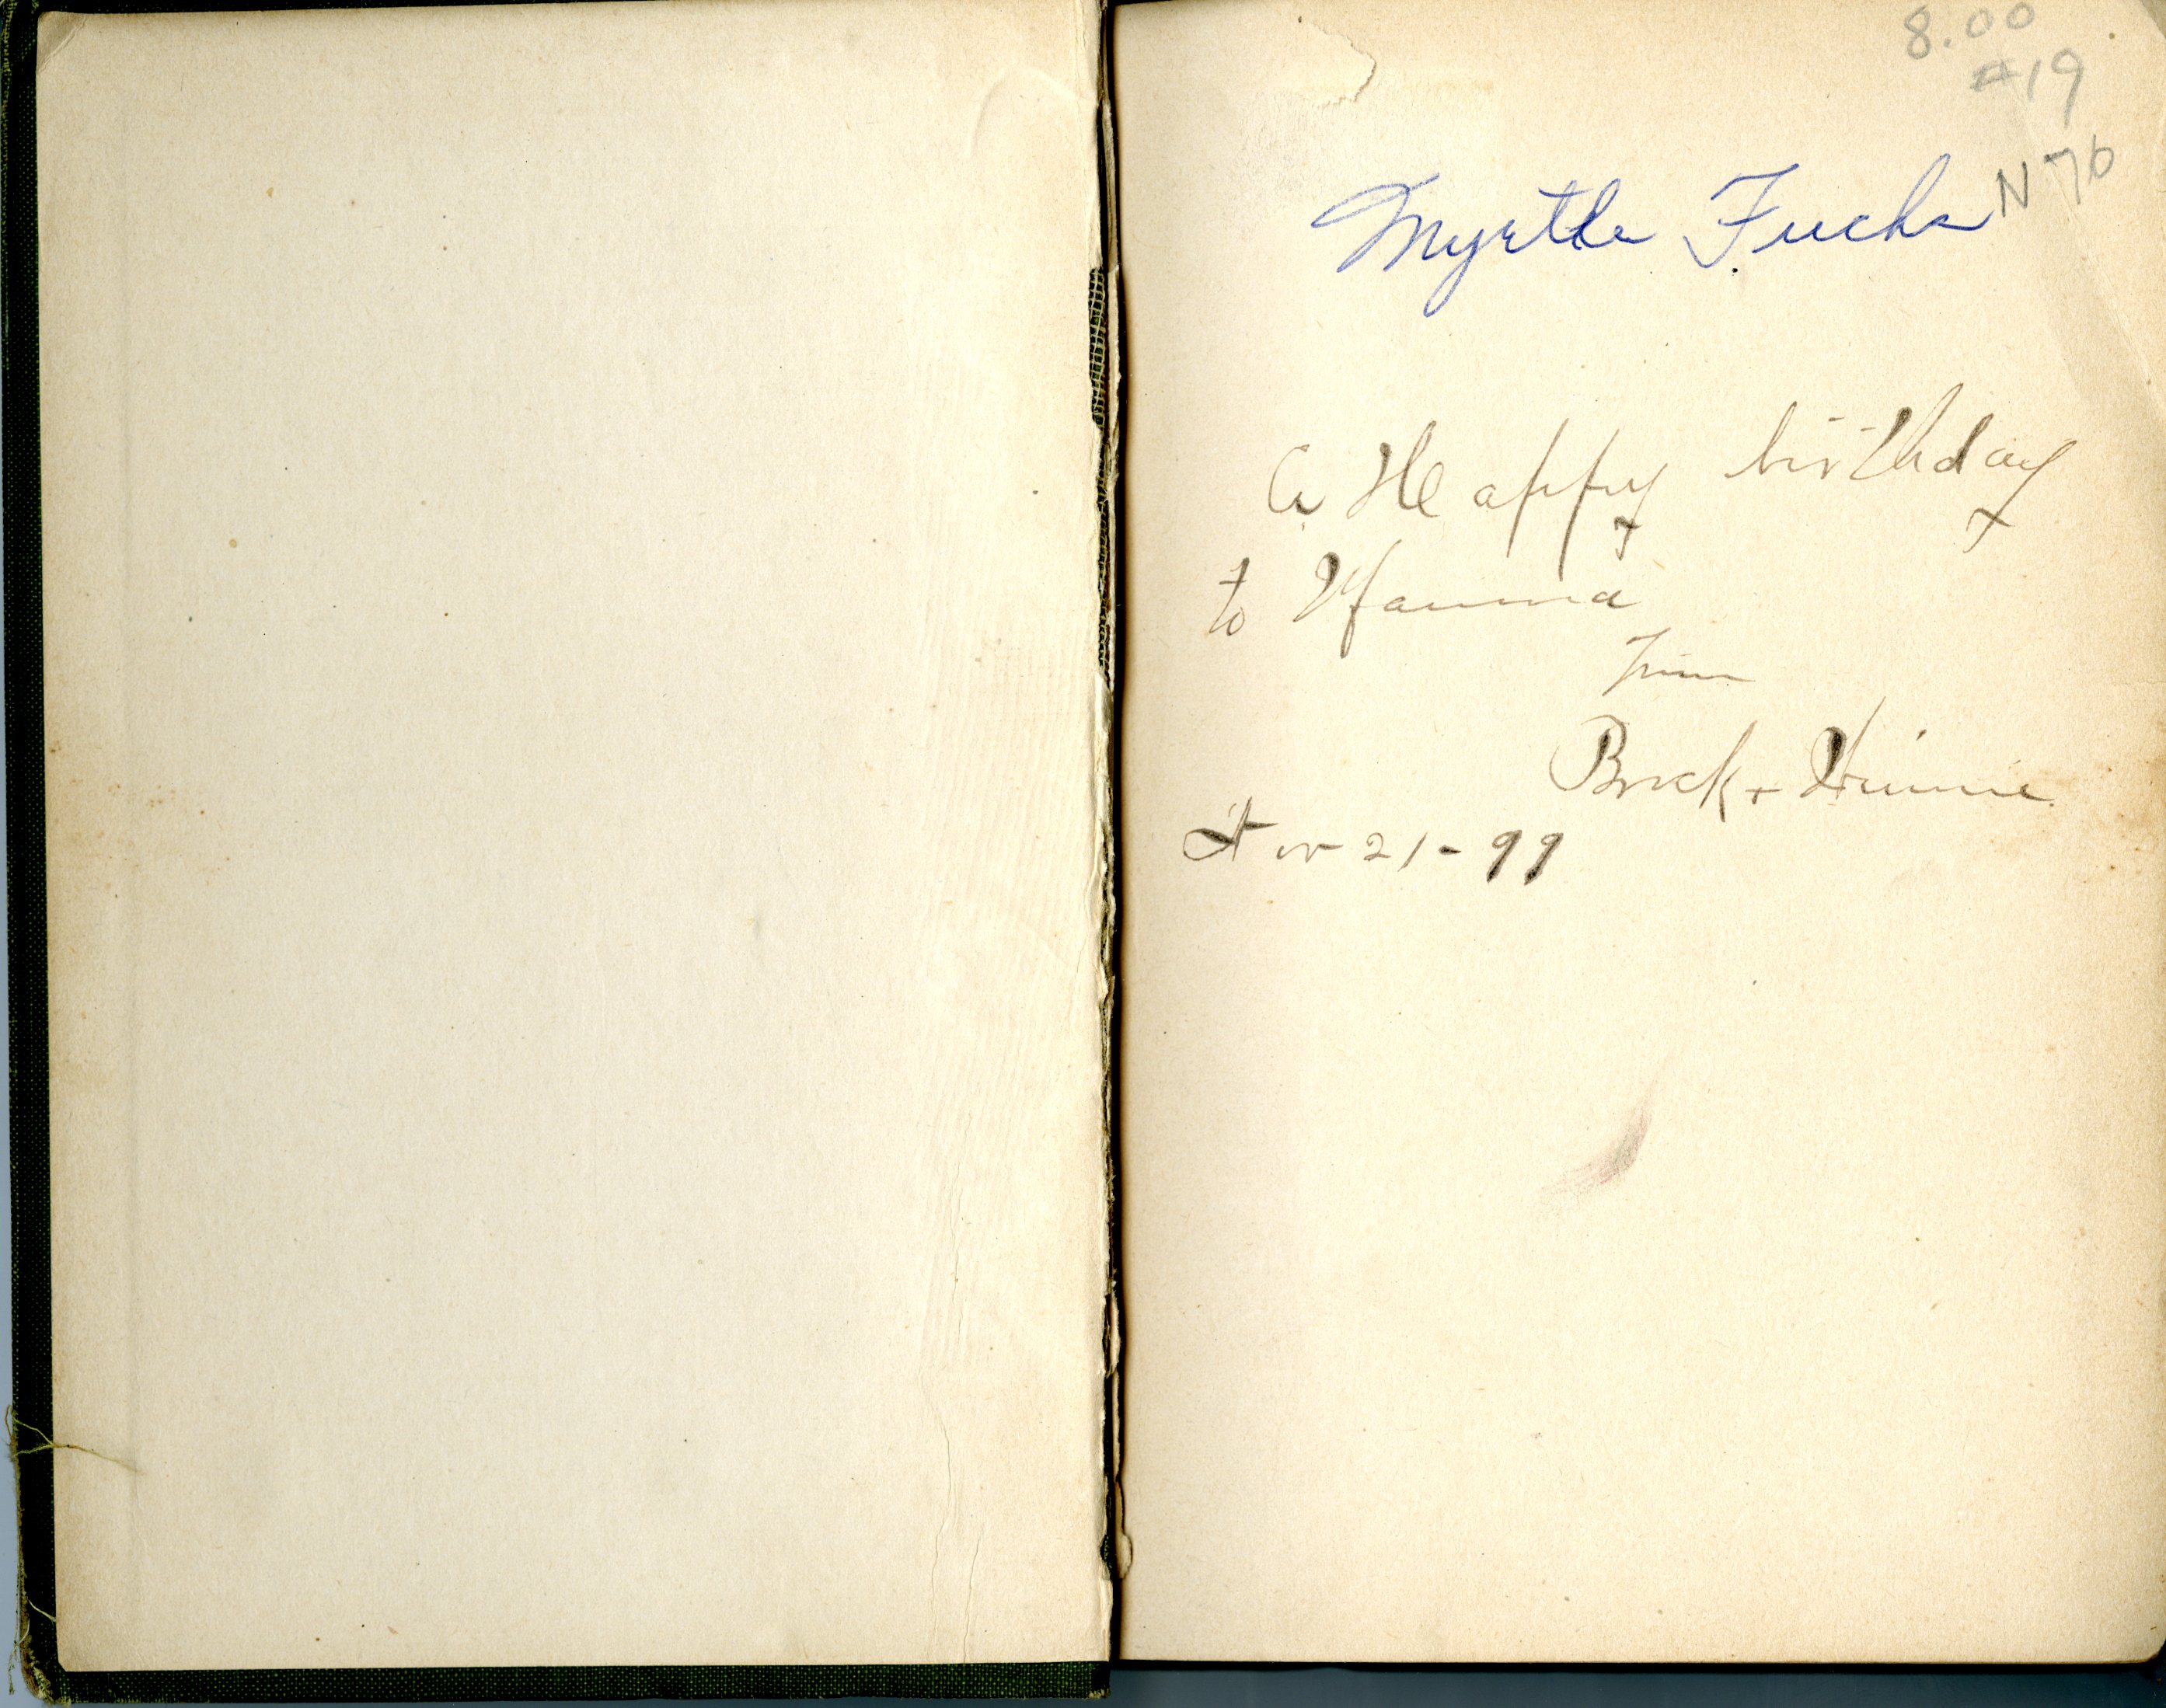 8.00
#19
N76
Myrtle Fuchs
A Happy birthday
to Mamma
from
Brick +
Nov 21-99